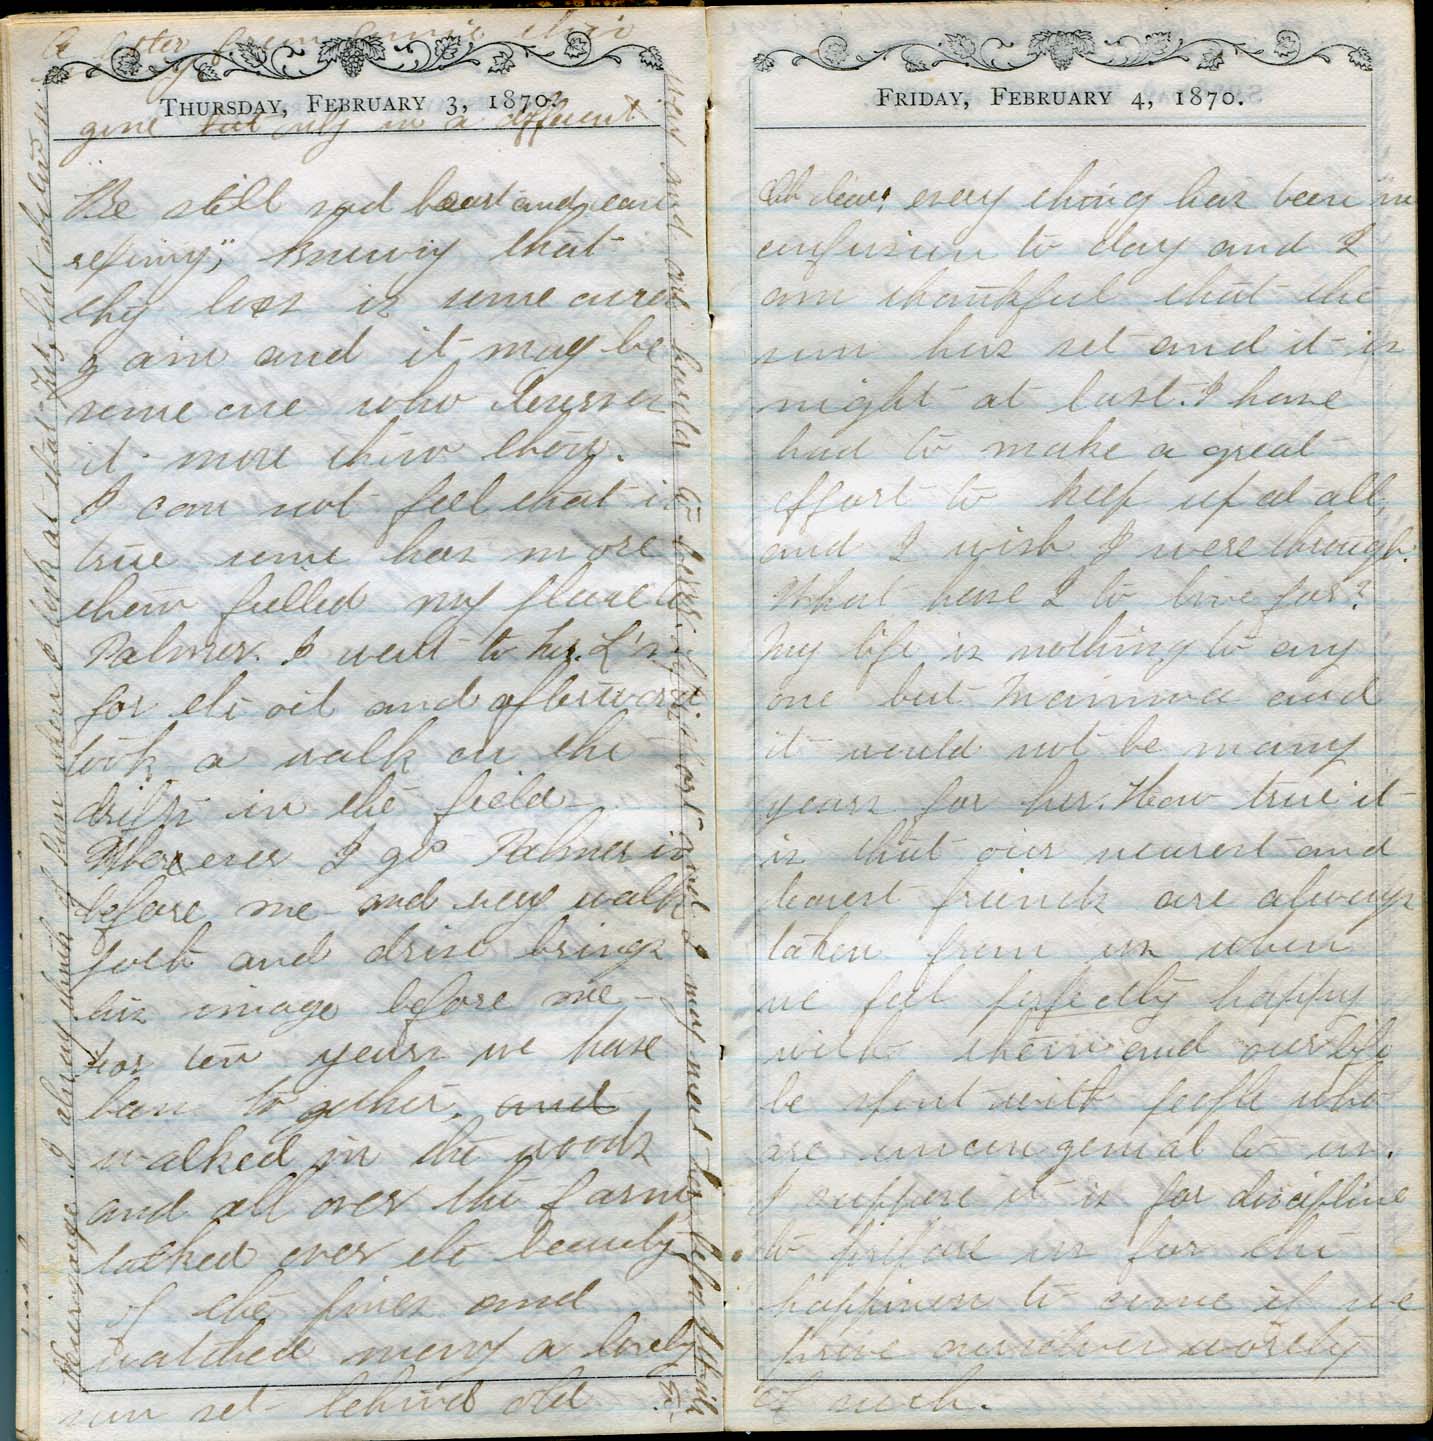 A letter from
THURSDAY, FEBRUARY 3, 1870.
gone but only in a different
"Be still sad heart and cease
repining"; knowing that
thy loss is some ones
gain and it may be
some one who deserves
it more than thou.
I can not feel that is
true some has more
than filled my place to
Palmer. I went to Mr. L's
for the oil and afterward
took a walk on the
drifts in the field
Wherever I go Palmer is
before me and every walk
path and drive brings
his image before me
For ten years we have
been together. and
walked in the woods
and all over the farm
talked over the beauty
of the pines and
watched many a lovely
sun set behind old
Kearsarge. I always think of Pam when I look at that
and I may meet her before
FRIDAY, FEBRUARY 4, 1870.
Oh dear, every thing has been in
confusion to day and I
am thankful that the
sun has set and it is
night at last. I have
had to make a great
effort to keep up at all,
and I wish I were through.
What have I to live for?
My life is nothing to any
one but Mamma and
it would not be many
years for her. How true it
is that our nearest and
dearest friends are always
taken from us when
we feel perfectly happy
with them and our life
be spent with people who
are uncongenial to us.
I suppose it is for discipline
to prepare us for the
happiness to come if we
prove ourselves worthy
of such.